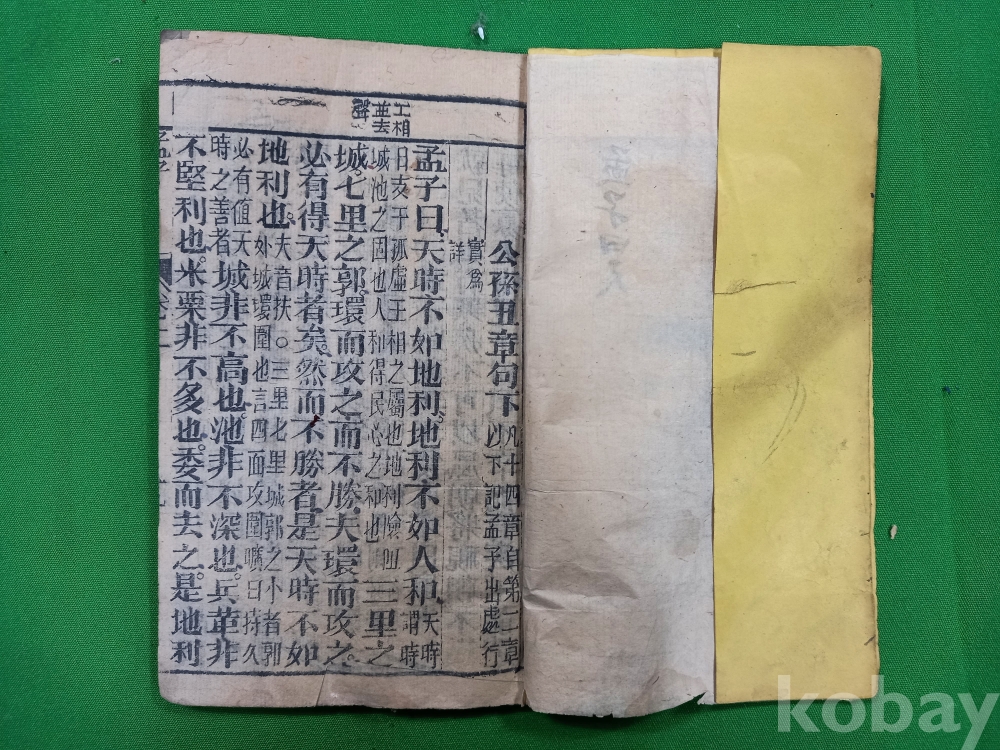 王相
並去
聲
公孫丑章句下
凡十四章自第二章
以下記孟子出處行
實爲
詳
孟子曰、天時不如地利。地利不如人和。
天時
謂時
日支干孤虛王相之屬也地利險阻
城池之固也人和得民心之和也
三里之
城。七里之郭。環而攻之而不勝。夫環而攻之。
必有得天時者矣。然而不勝者。是天時不如
地利也。
夫音扶○三里七里城郭之小者郭
外城環圍也言四面攻圍曠日持久
必有值天
時之善者
城非不高也。池非不深也。兵革非
不堅利也。米粟非不多也。委而去之。是地利
孟子
kobay